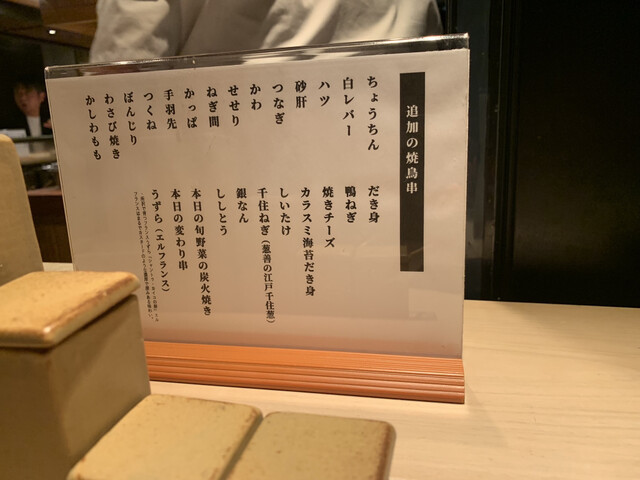 追加の焼鳥串
ちょうちん
白レバー
ハツ
砂肝
つなぎ
かわ
せせり
ねぎ間
かっぱ
手羽先
つくね
ぼんじり
わさび焼き
かしわもも
だき身
鴨ねぎ
焼きチーズ
カラスミ海苔だき身
しいたけ
千住ねぎ（葱善の江戸千住葱）
銀なん
ししとう
本日の旬野菜の炭火焼き
本日の変わり串
うずら（エルフランス）